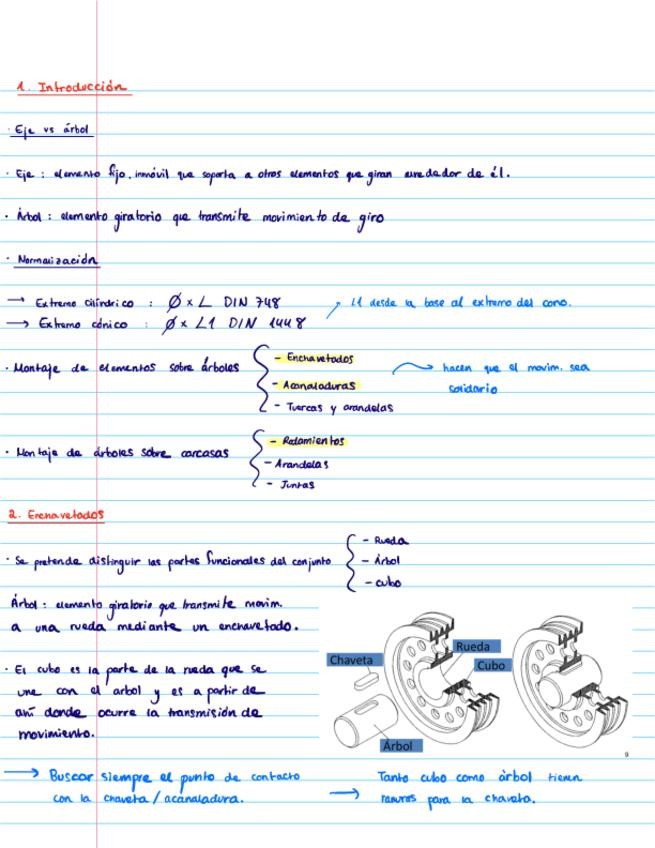 1. Introducción
· Eje vs árbol
· Eje : elemento fijo, inmóvil que soporta a otros elementos que giran alrededor de él.
· Árbol : elemento giratorio que transmite movimiento de giro
· Normalización
→ Extremo cilíndrico : Ø x L DIN 748
→ Extremo cónico : Ø x L1 DIN 1448
L1 desde la base al extremo del cono.
· Montaje de elementos sobre árboles
- Enchavetados
- Acanaladuras
- Tuercas y arandelas
hacen que el movim. sea
solidario
· Montaje de árboles sobre carcasas
- Rodamientos
- Arandelas
- Juntas
2. Enchavetados
· Se pretende distinguir las partes funcionales del conjunto
- Rueda
- Árbol
- cubo
Árbol : elemento giratorio que transmite movim.
a una rueda mediante un enchavetado.
· El cubo es la parte de la rueda que se
une con el arbol y es a partir de
ahí donde ocurre la transmisión de
movimiento.
Chaveta
Rueda
Cubo
Árbol
9
→ Buscar siempre el punto de contacto
con la chaveta / acanaladura.
→ Tanto cubo como árbol tienen
ranuras para la chaveta.